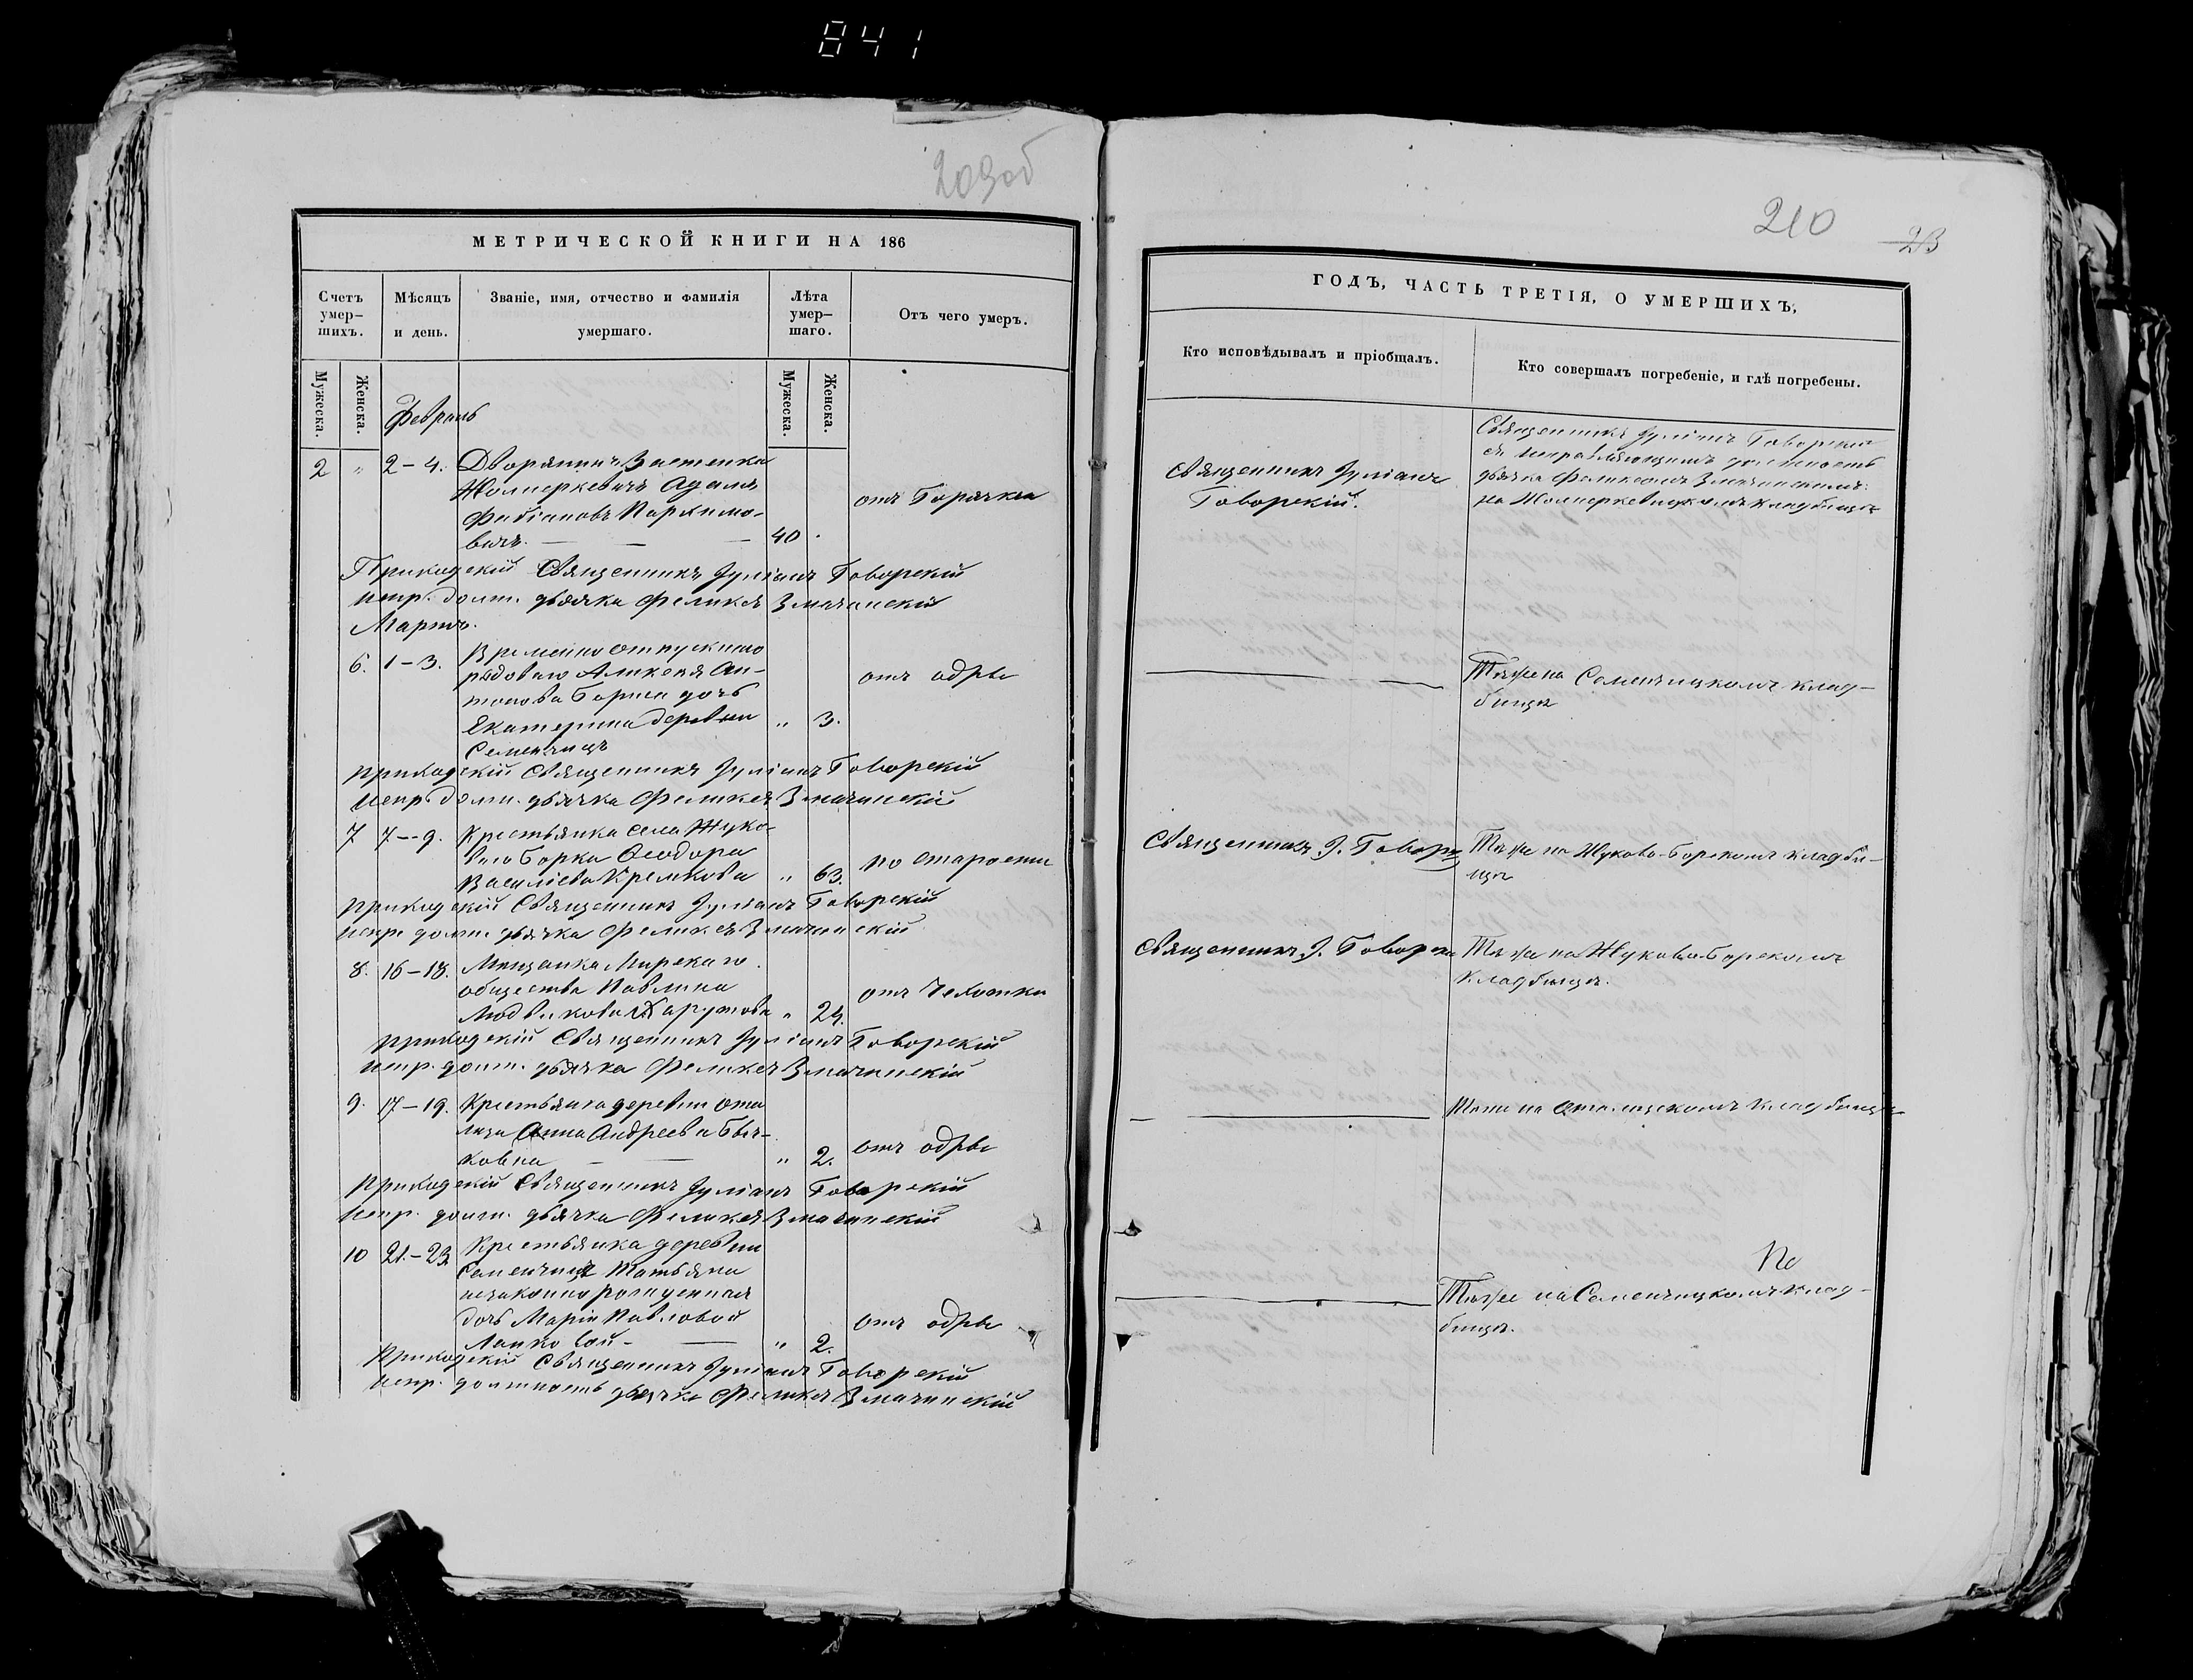 841
209об
МЕТРИЧЕСКОЙ КНИГИ НА 186
Счетъ умер-шихъ.
Мѣсяцъ и день.
Званіе, имя, отчество и фамилія умершаго.
Лѣта умер-шаго.
Отъ чего умеръ.
Мужеска.
Женска.
Мужеска.
Женска.
Февраль
2 „ 2-4. Дворянинъ Застенка
Жолнеркевичъ Адамъ
Фабіановъ Пархимо-
вичъ. — — — 40 .
отъ Горячки
Приходскій Священникъ Іуліанъ Говорскій
испр. долж. дьячка Феликсъ Змачинскій
Мартъ.
6. 1-3. Временно отпускного
рядового Алексея Ан-
тонова дочь
Екатерина деревни „ 3.
Семенчицъ
отъ одры
Приходскій Священникъ Іуліанъ Говорскій
испр. долж. дьячка Феликсъ Змачинскій
7 7-9. Крестьянка села Жуко-
ваго Борка Ѳеодора
Василіева „ 63.
по старости
Приходскій Священникъ Іуліанъ Говорскій
испр. долж. дьячка Феликсъ Змачинскій
8. 16-18. Мещанка Мирскаго
общества Павлина
Людвикова „ 24.
отъ чехотки
Приходскій Священникъ Іуліанъ Говорскій
испр. долж. дьячка Феликсъ Змачинскій
9. 17-19. Крестьянка деревни
Анна Андреева Быч-
ковна — — „ 2.
отъ одры
Приходскій Священникъ Іуліанъ Говорскій
испр. долж. дьячка Феликсъ Змачинскій
10 21-23 Крестьянка деревни
Семенчицъ Татьяна
незаконно рожденная
дочь Маріи Павловой
— „ 2.
отъ одры
Приходскій Священникъ Іуліанъ Говорскій
испр. должность дьячка Феликсъ Змачинскій
210
23
ГОДЪ, ЧАСТЬ ТРЕТІЯ, О УМЕРШИХЪ,
Кто исповѣдывалъ и пріобщалъ.
Кто совершалъ погребеніе, и гдѣ погребены.
Священникъ Іуліанъ
Говорскій.
Священникъ Іуліанъ Говорский
съ исправляющимъ должность
дьячка Феликсомъ Змачинскимъ
на Жолнеркевицкомъ кладбище
Тѣже на Семенчицкомъ клад-
бище
Священникъ І. Говорс
Тѣже на Жуково-Борскомъ кладби-
ще
Священникъ І. Говорск
Тѣже на Жуково-Борскомъ
кладбище.
Тѣже на кладбище
По
Тѣже на Семенчицкомъ клад-
бище.